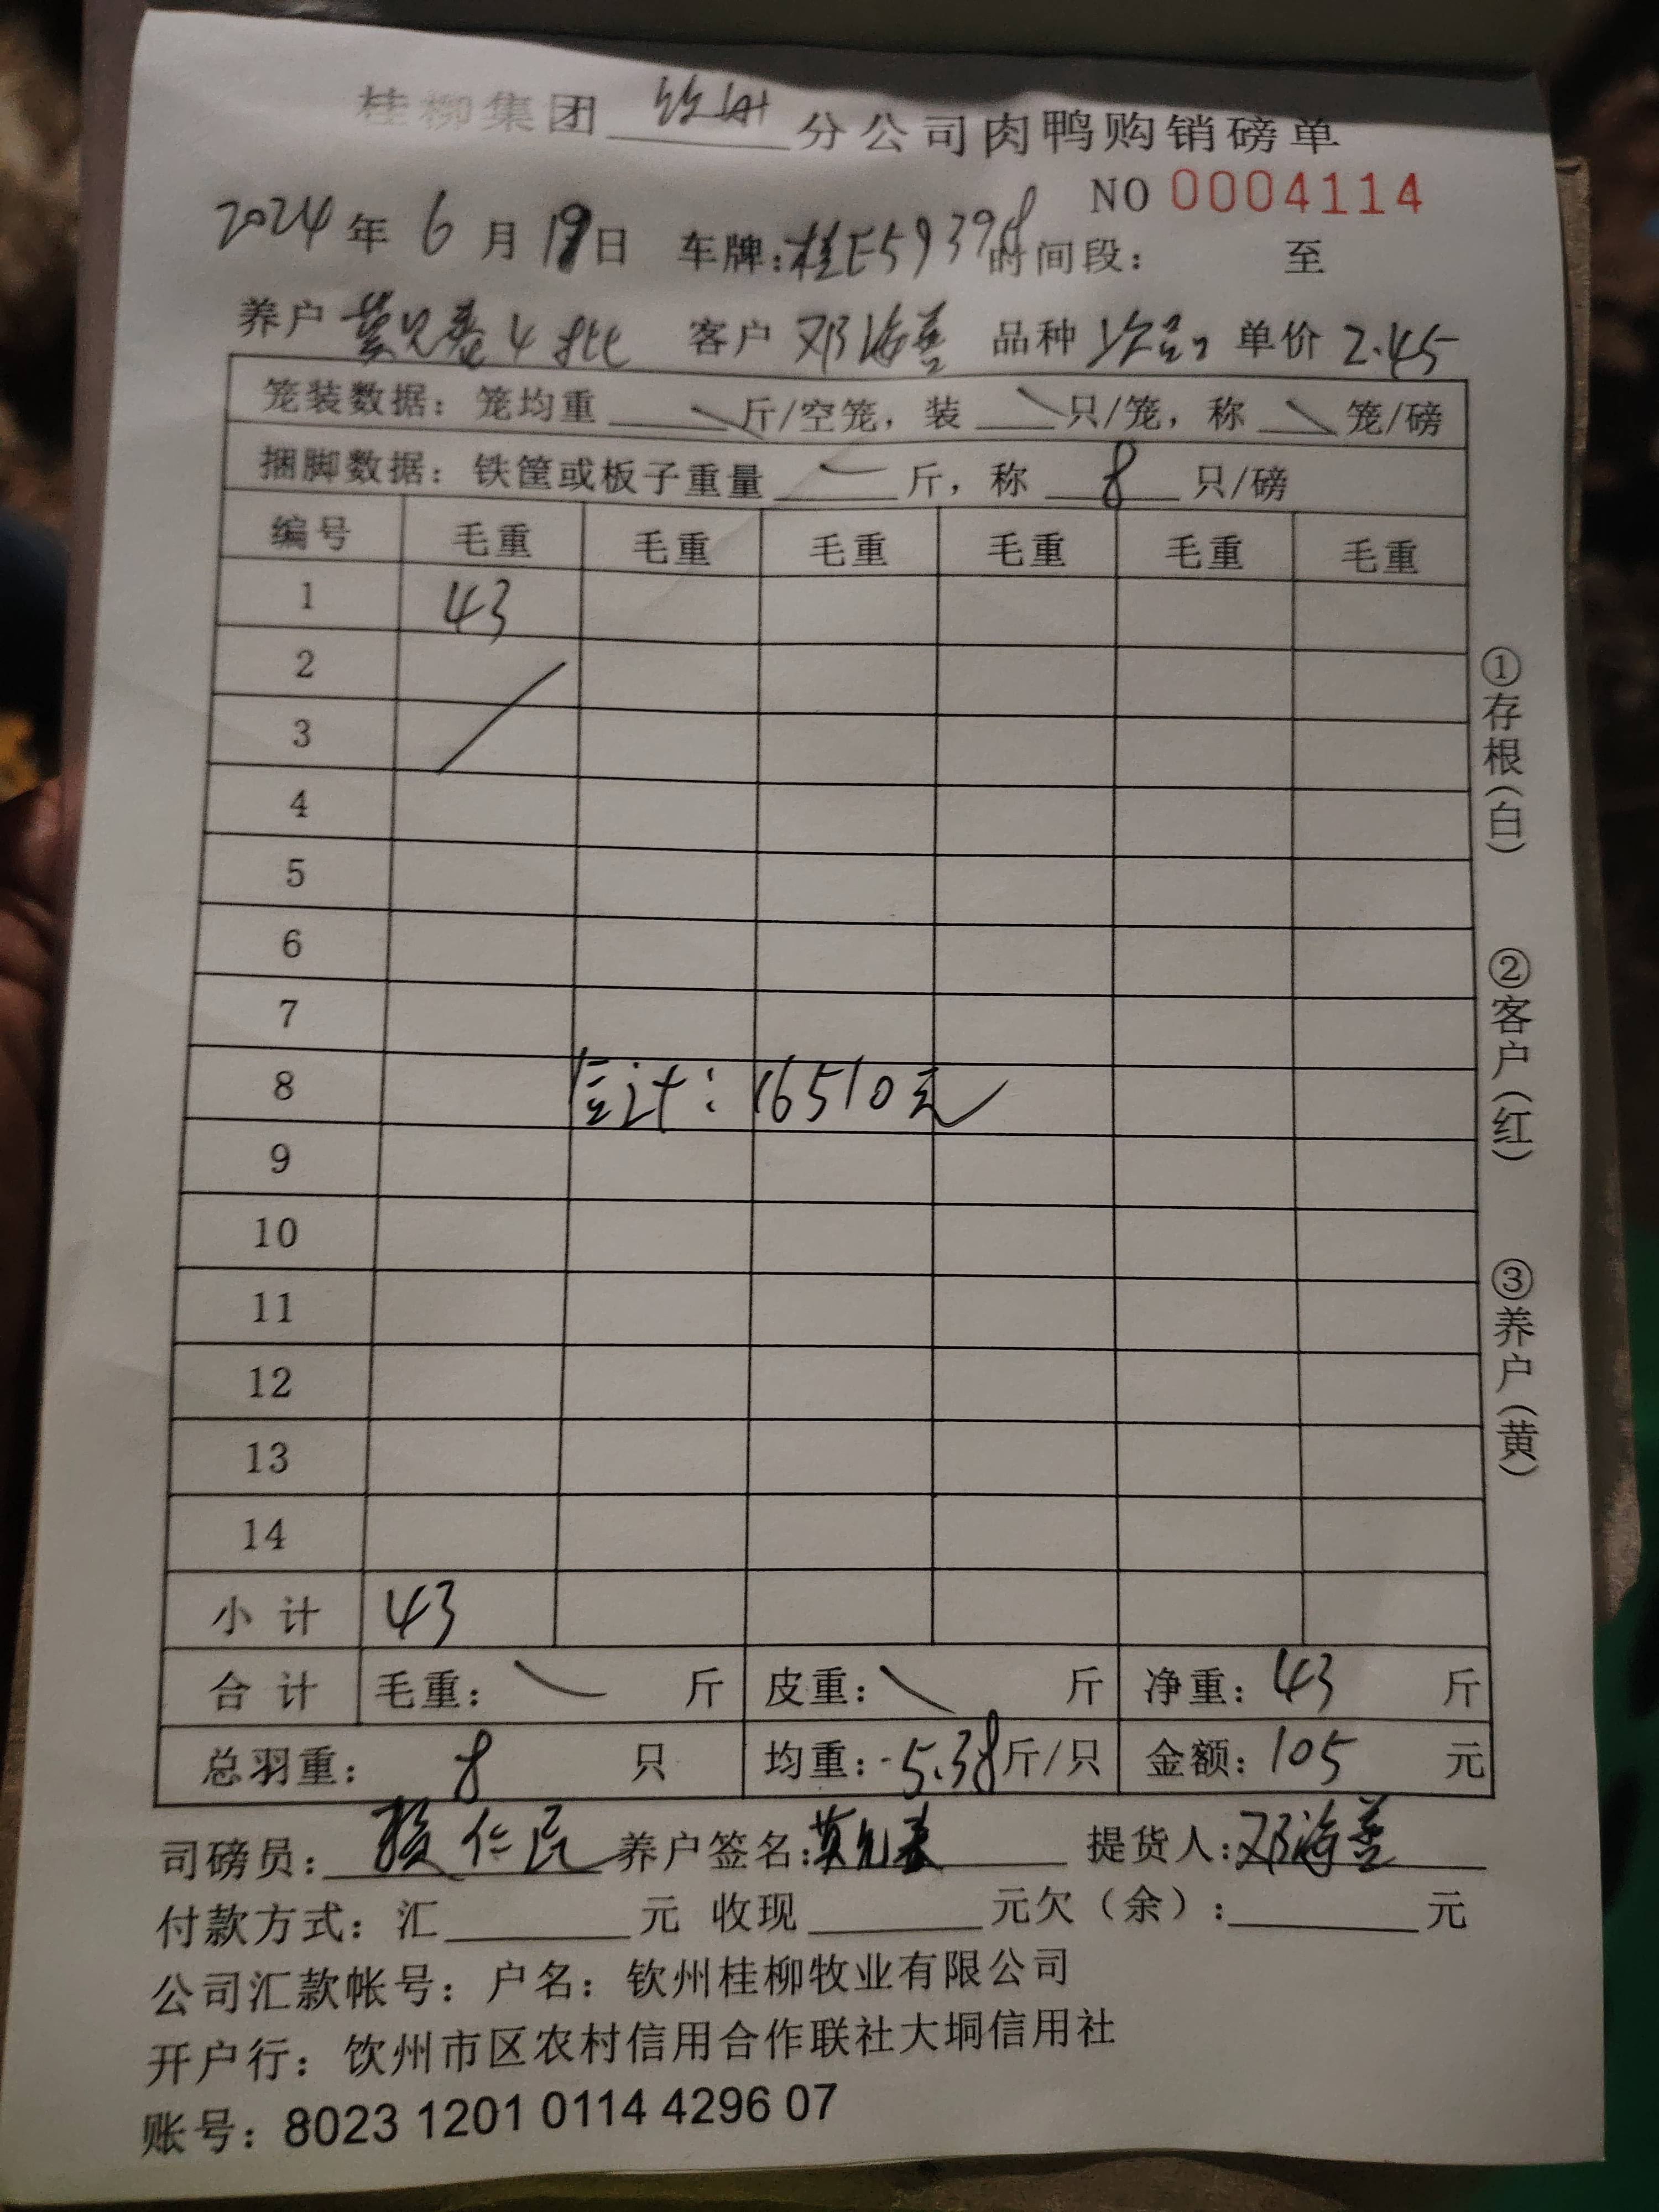 桂柳集团 钦州 分公司肉鸭购销磅单
NO 0004114
2024 年 6 月 19 日 车牌：桂E59398 时间段： 至
养户 4批 客户 邓海善 品种 单价 2.45
笼装数据：笼均重 斤/空笼，装 只/笼，称 笼/磅
捆脚数据：铁筐或板子重量 斤，称 8 只/磅
编号 毛重 毛重 毛重 毛重 毛重 毛重
1 43
2
3
4
5
6
7
8 合计：16510元
9
10
11
12
13
14
小计 43
合计 毛重： 斤 皮重： 斤 净重：43 斤
总羽重： 8 只 均重：5.38斤/只 金额：105 元
司磅员： 仁民 养户签名： 提货人：邓海善
付款方式：汇 元 收现 元欠（余）： 元
公司汇款帐号：户名：钦州桂柳牧业有限公司
开户行：饮州市区农村信用合作联社大垌信用社
账号：8023 1201 0114 4296 07
①存根（白）
②客户（红）
③养户（黄）